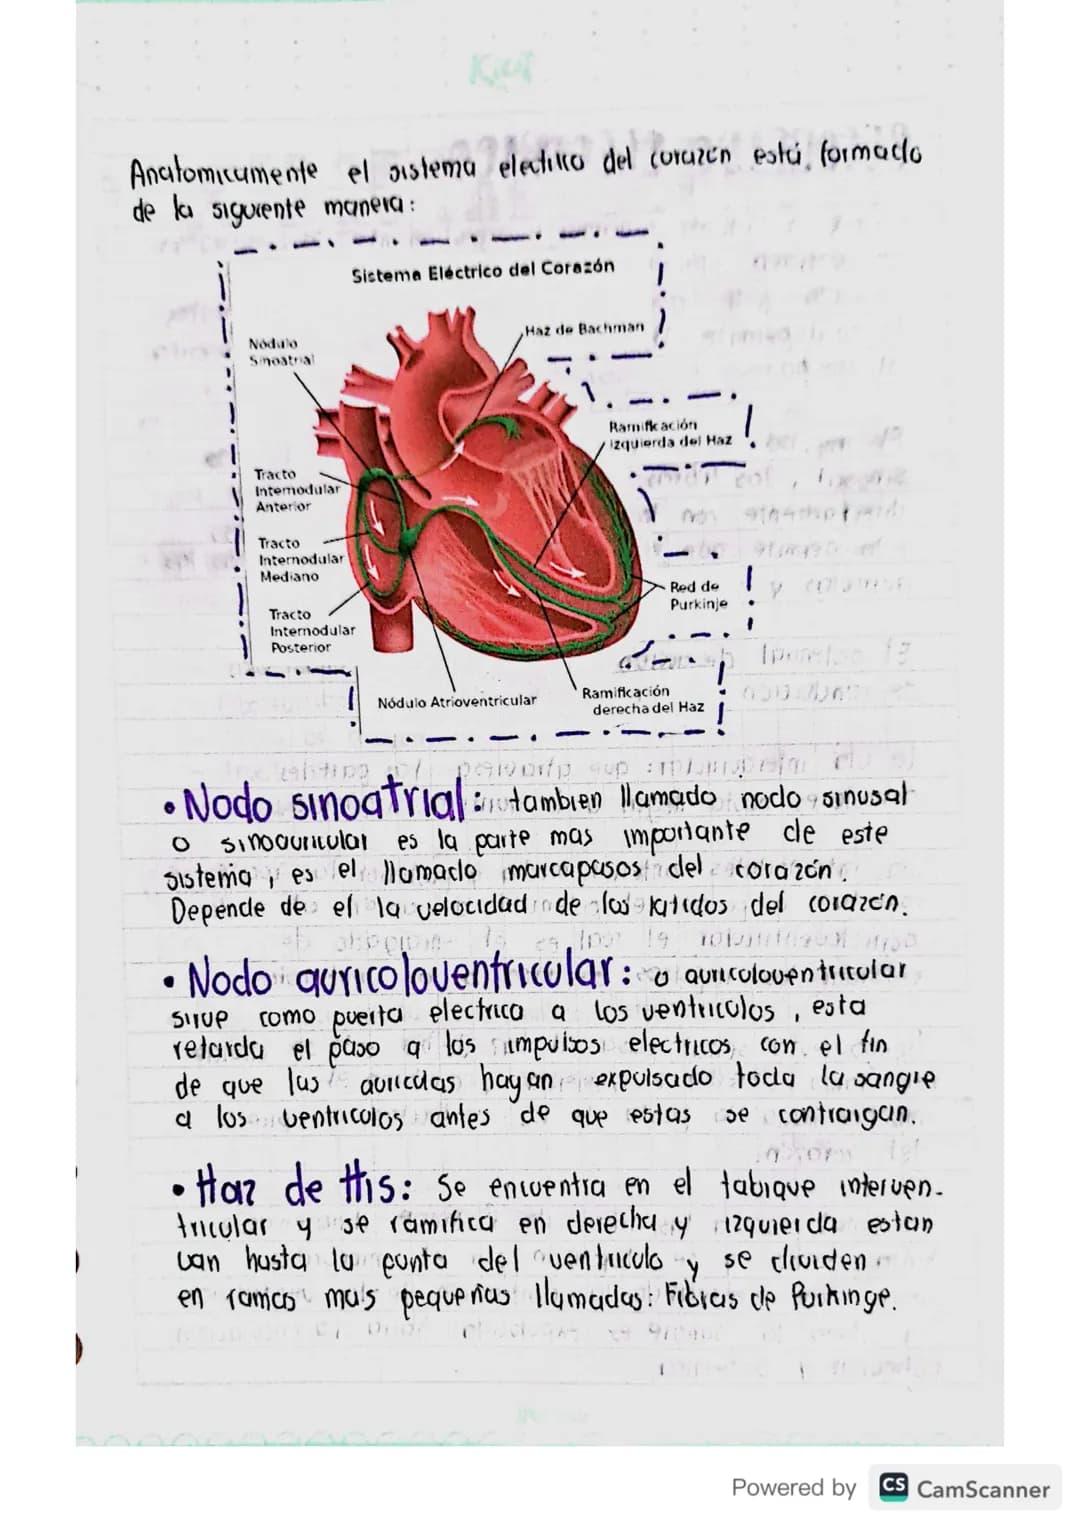 Anatomicamente el sistema electrico del corazón está formado
de la siguiente manera:
Sistema Eléctrico del Corazón
Haz de Bachman
Nódulo
Sinoatrial
Ramificación
izquierda del Haz
Tracto
Internodular
Anterior
Tracto
Internodular
Mediano
Red de
Purkinje
Tracto
Internodular
Posterior
Nódulo Atrioventricular
Ramificación
derecha del Haz
• Nodo sinoatrial: tambien llamado nodo sinusal
o sinoauricular es la parte mas importante de este
sistema, es el llamado marcapasos del corazón.
Depende de el la velocidad de los latidos del corazón.
• Nodo auricoloventricular: o auricoloventricular
sirve como puerta electrica a los ventriculos, esta
retarda el paso a los impulsos electricos, con el fin
de que las auriculas hayan expulsado toda la sangre
a los ventriculos antes de que estas se contraigan.
• Haz de His: Se encuentra en el tabique interven-
tricular y se ramifica en derecha y izquierda estan
van hasta la punta del ventriculo y se dividen
en ramas mas pequeñas llamadas: Fibras de Purkinge.
Powered by CS CamScanner